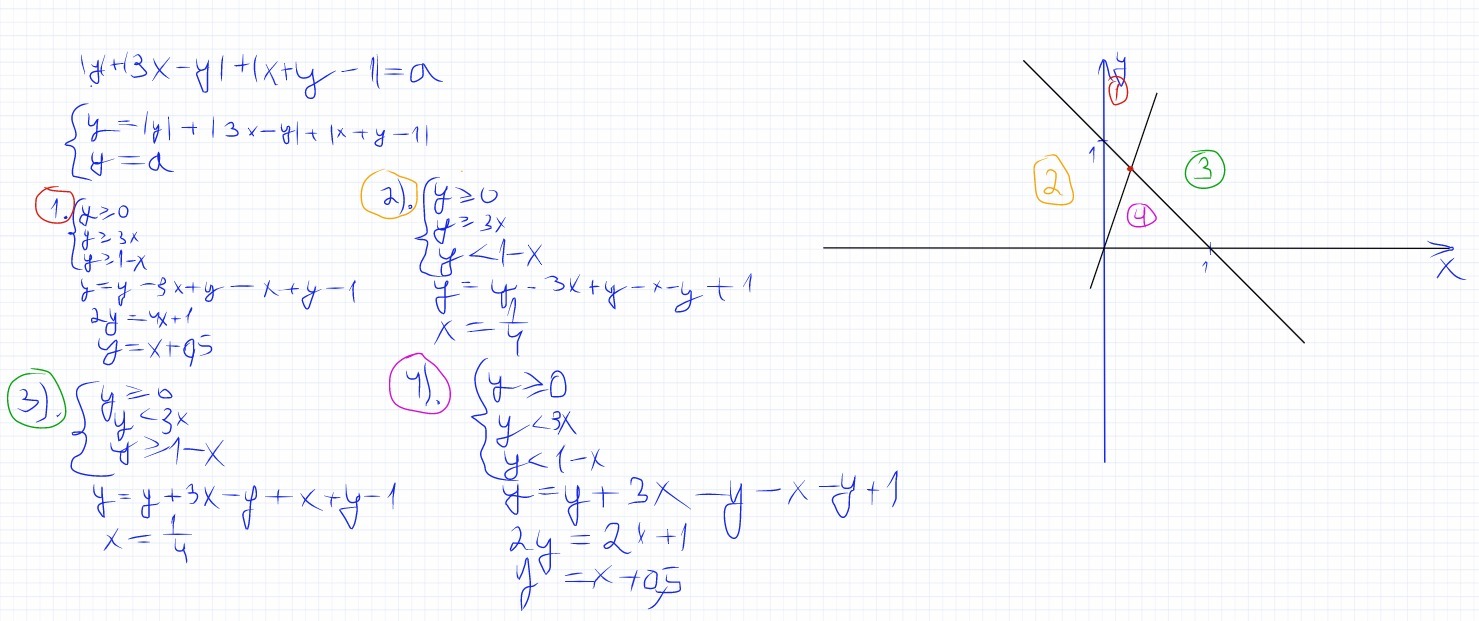 |y|+|3x-y|+|x+y-1|=a
{y=|y|+|3x-y|+|x+y-1|
y=a
1. {y≥0
y≥3x
y≥1-x
y=y-3x+y-x+y-1
2y=4x+1
y=x+0,5
2). {y≥0
y≥3x
y<1-x
y=y-3x+y-x-y+1
x=1/4
3). {y≥0
y<3x
y≥1-x
y=y+3x-y+x+y-1
x=1/4
4). {y≥0
y<3x
y<1-x
y=y+3x-y-x-y+1
2y=2x+1
y=x+0,5
y
1
1
2
3
4
1
x